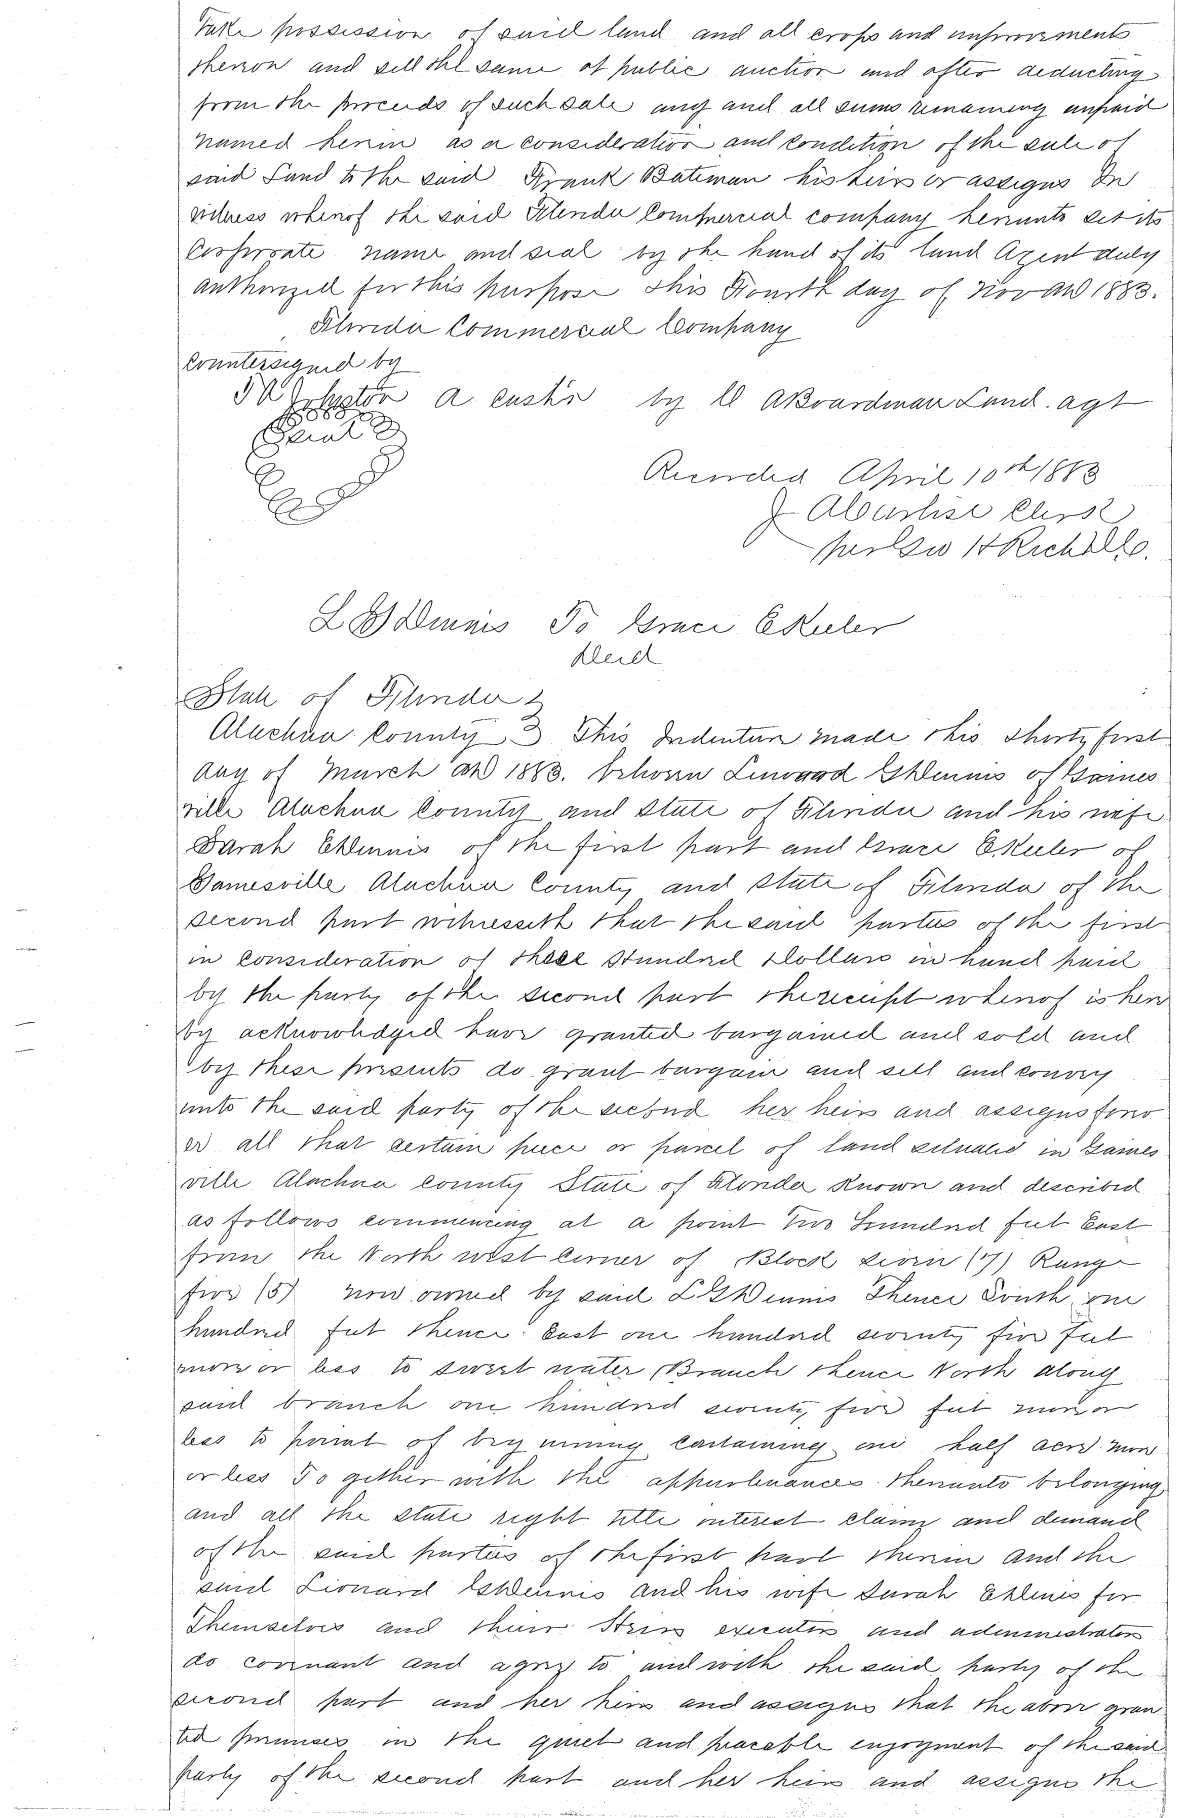 Take possession of said land and all crops and improvements
thereon and sell the same at public auction and after deducting
from the proceeds of such sale any and all sums remaining unpaid
named herein as a consideration and condition of the sale of
said Land to the said Frank Bateman his heirs or assigns In
witness whereof the said Florida Commercial company hereunto set its
Corporate name and seal by the hand of its land Agent duly
authorized for this purpose this Fourth day of Nov AD 1883.
Florida Commercial Company
Countersigned by
Johnston a cash'r by A Boardman Land. agt
Seal
Recorded April 10th 1883
J A Carlisle Clerk
per Geo H Rich D.C.
L G Dennis To Grace E Keeler
Deed
State of Florida
Alachua County This Indenture made this thirty first
day of March AD 1883. between Leonard G Dennis of Gaines
ville Alachua County and State of Florida and his wife
Sarah E Dennis of the first part and Grace E. Keeler of
Gainesville Alachua County and State of Florida of the
second part witnesseth that the said parties of the first
in consideration of three Hundred Dollars in hand paid
by the party of the second part the receipt whereof is here
by acknowledged have granted bargained and sold and
by these presents do grant bargain and sell and convey
unto the said party of the second her heirs and assigns forev
er all that certain piece or parcel of land situated in Gaines
ville Alachua County State of Florida Known and described
as follows commencing at a point Two Hundred feet East
from the North west Corner of Block seven (7) Range
five (5) now owned by said L G Dennis Thence South one
hundred feet thence East one hundred seventy five feet
more or less to sweet water Branch thence North along
said branch one hundred seventy five feet more or
less to point of beginning Containing one half acre more
or less Together with the appurtenances thereunto belonging
and all the state right title interest claim and demand
of the said parties of the first part therein and the
said Leonard G Dennis and his wife Sarah E Dennis for
Themselves and their Heirs executors and administrators
do covenant and agree to and with the said party of the
second part and her heirs and assigns that the above gran
ted premises in the quiet and peacable enjoyment of the said
party of the second part and her heirs and assigns the